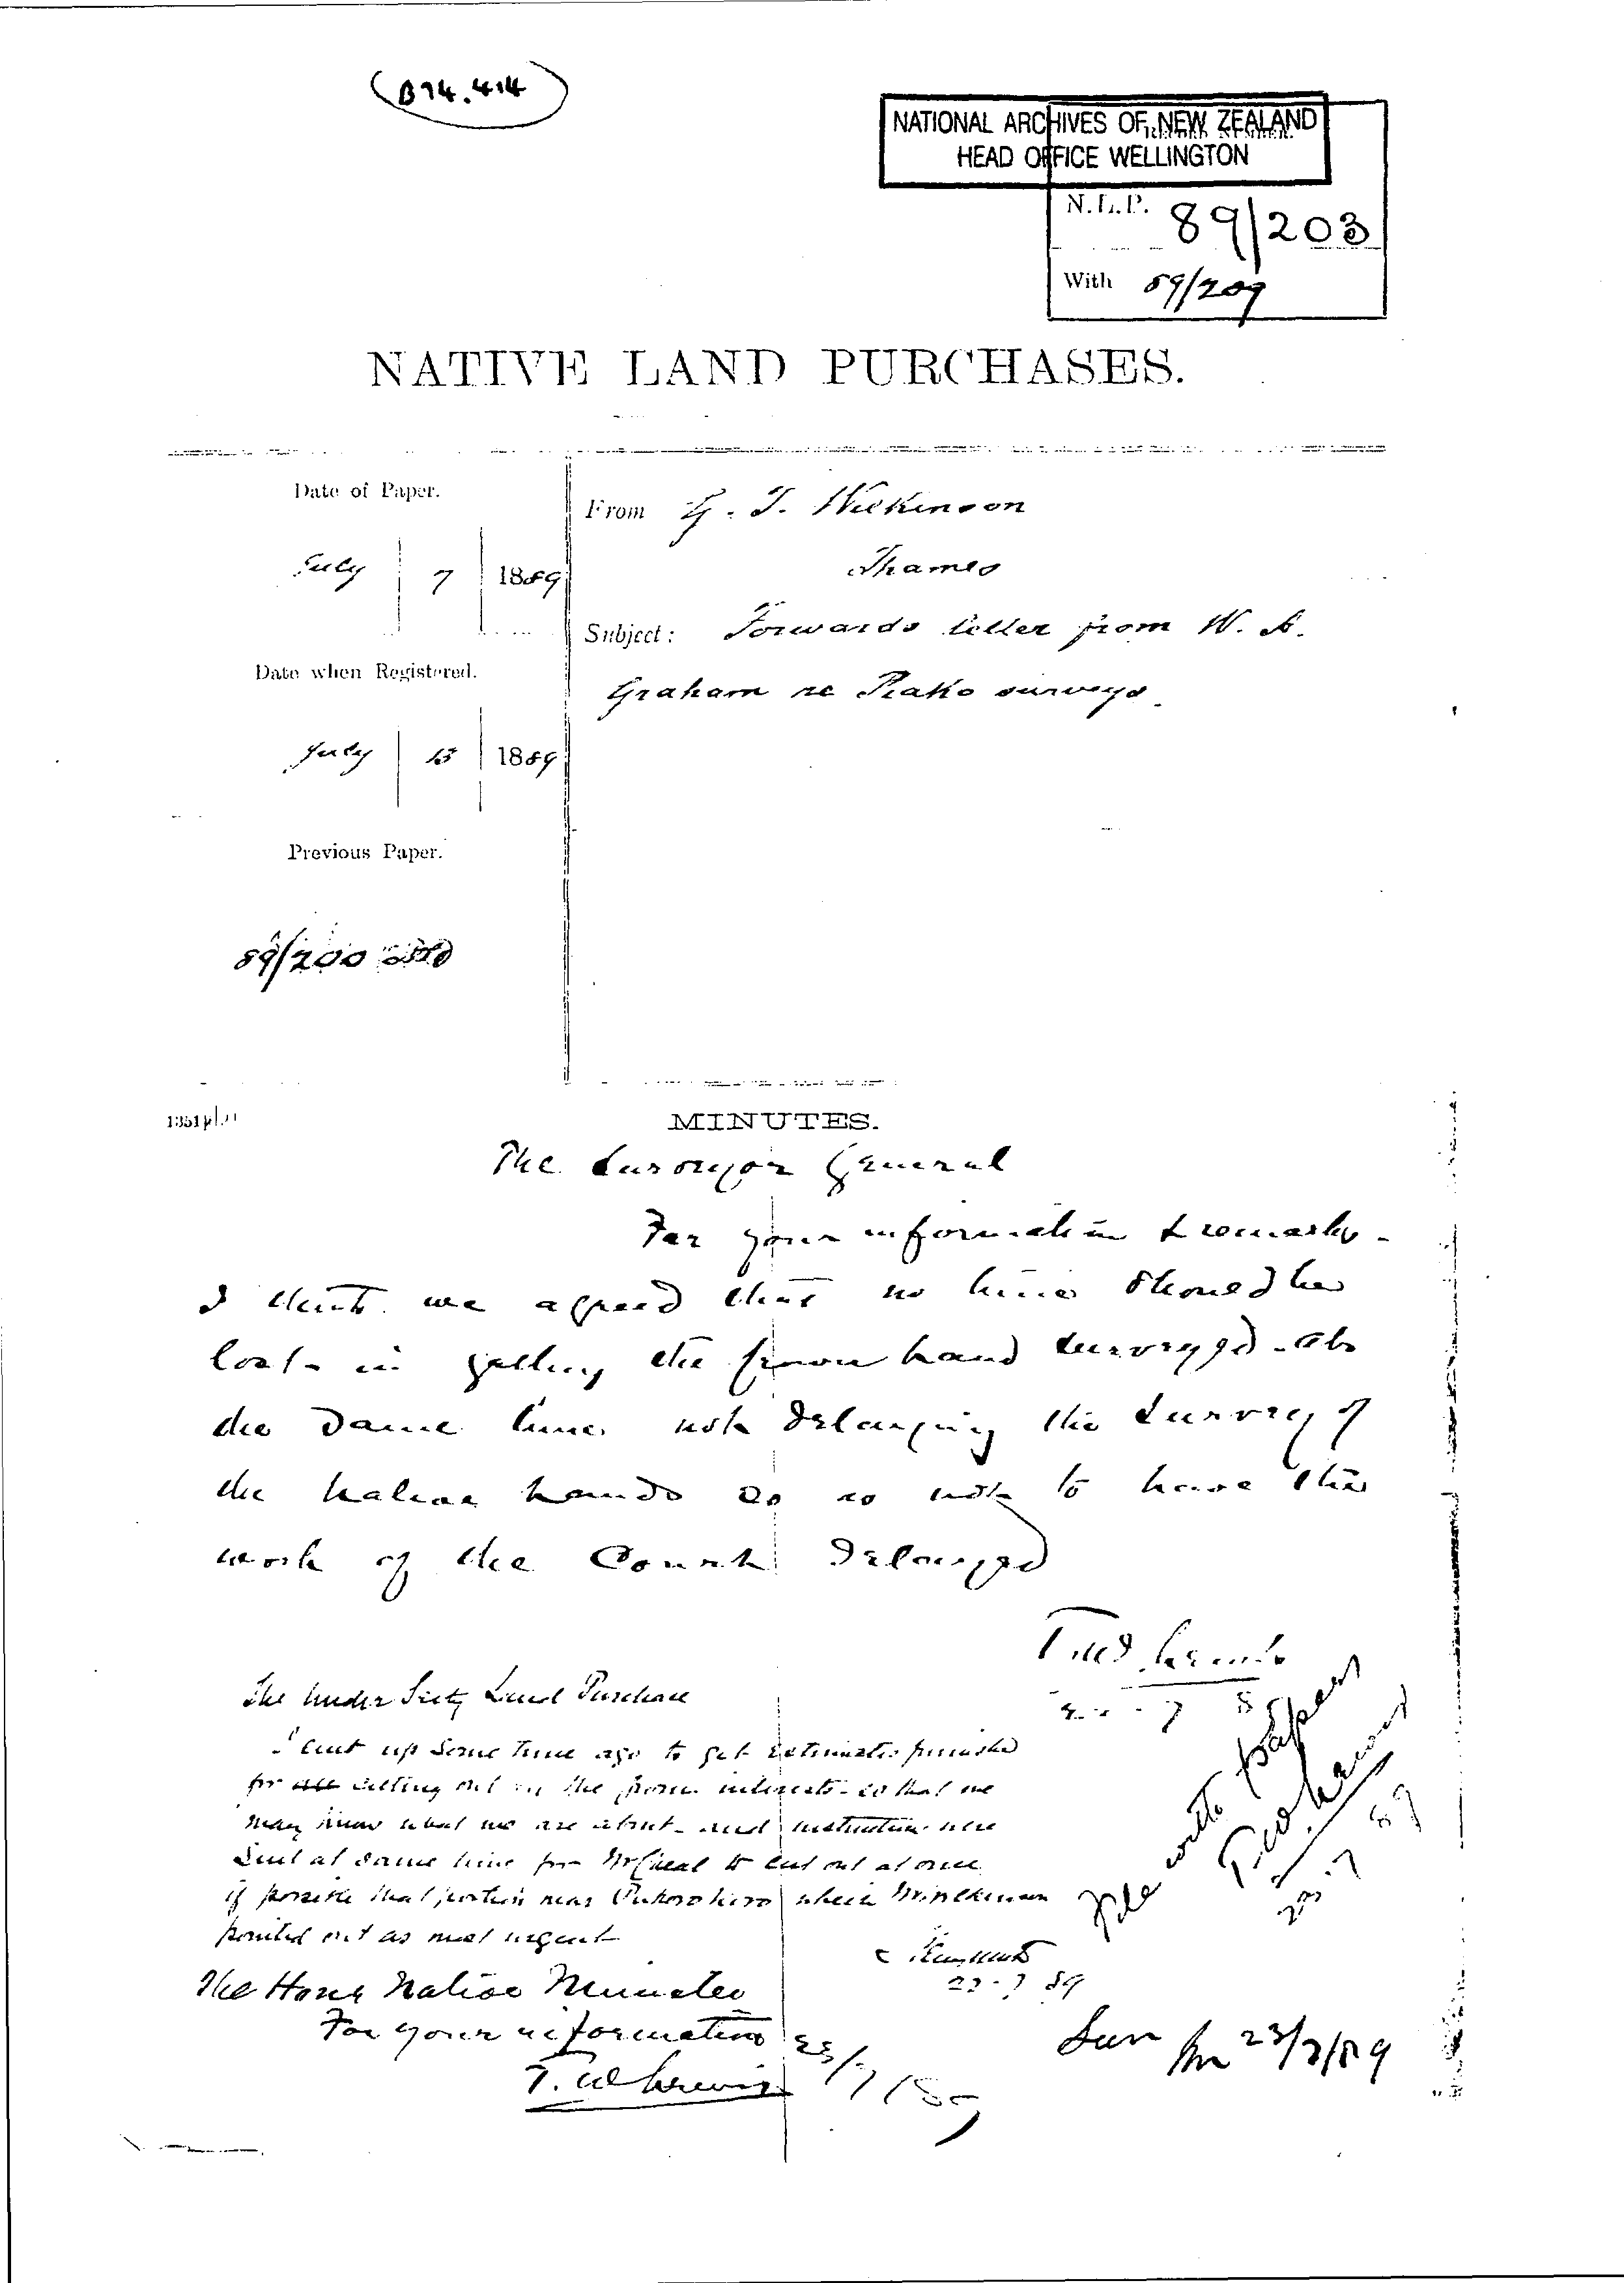 B74.414
NATIONAL ARCHIVES OF NEW ZEALAND
HEAD OFFICE WELLINGTON
N.L.P. 89/203
With 89/209
NATIVE LAND PURCHASES.
Date of Paper.
July 7 1889
From G. T. Wilkinson
Thames
Subject: Forwards letter from W. A.
Graham re Piako surveys
Date when Registered.
July 15 1889
Previous Paper.
89/200
MINUTES.
The Surveyor General
For your information & remarks -
I think we agreed that no time should be
lost in getting the Crown land surveyed - at
the same time not delaying the survey of
the native lands so as not to have the
work of the Court delayed
The Under Secty Land Purchase
I sent up some time ago to get estimates furnished
for cutting out the interests - so that we
may know what we are about - and instructions were
sent at same time for to cut out at once
if possible that portion near Pukorokoro where Mr Wilkinson
pointed out as most urgent
23-7-89
The Honr Native Minister
For your information
T. W. Lewis 23/7/89
File with papers
23/7/89